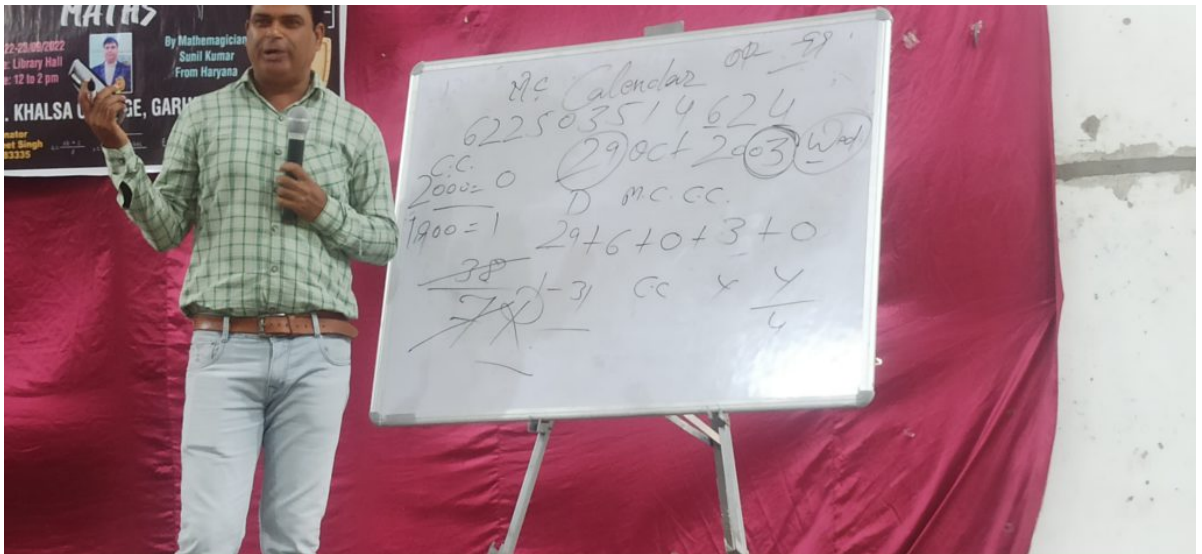 MATHS
22-23/09/2022
: Library Hall
: 12 to 2 pm
By Mathemagician
Sunil Kumar
From Haryana
. KHALSA GE, GARH
nator
et Singh
83335
M.C. Calendar
622503514624
C.C.
2000=0
29 Oct 2003 Wed.
D M.C. C.C.
1900=1
29+6+0+3+0
38
7
1-31 C.C Y Y
4